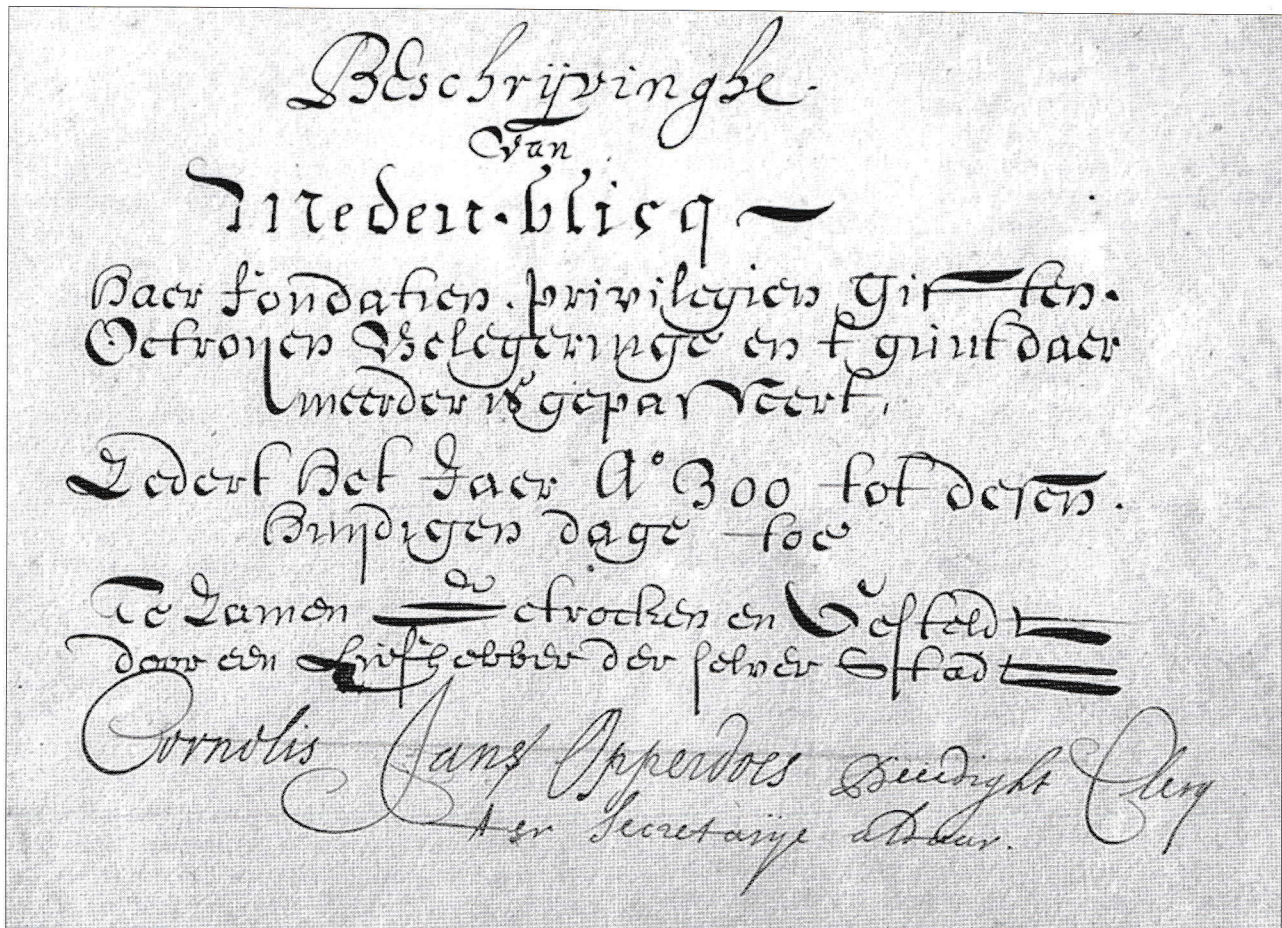 BEschrijvinghe.
Van
Meden.blicq
haer fondatien. privilegien Giften.
Octroyen Belegeringe en t gunt daer
meerder is gepasseert,
Zedert het Jaer A° 300 tot desen.
huijdigen dage toe
Te Zamen getrocken en Gesteld
door een Liefhebber der selver Stad
Cornelis Jansz Opperdoes Beeedight Clerq
ter Secretarije aldaar.